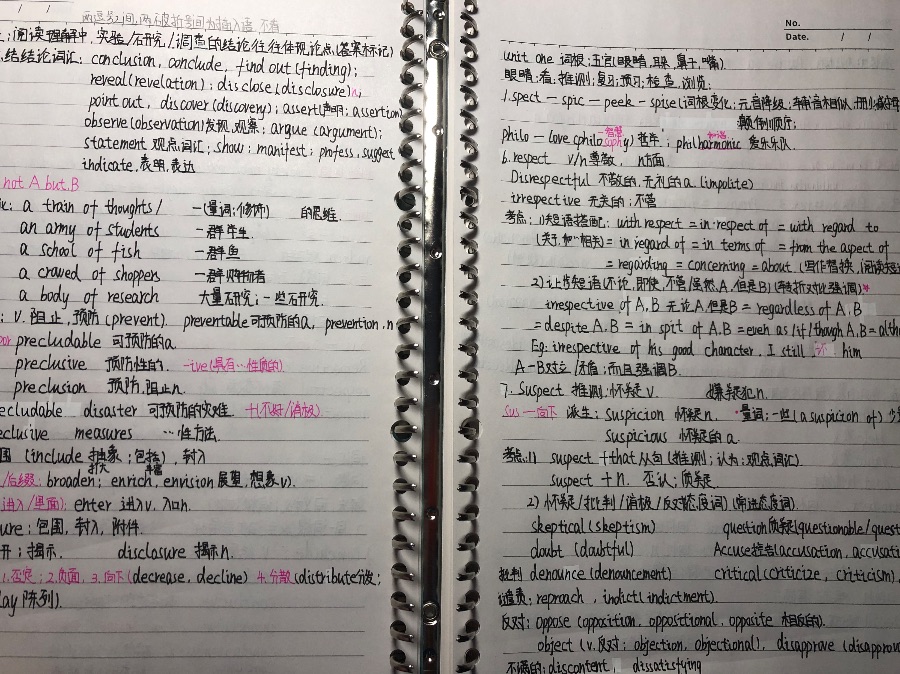 两逗号之间,两破折号间为插入语 不看
:阅读理解中,实验/研究/调查的结论往往体现论点(答案标记)
.结结论词汇: conclusion, conclude, find out (finding);
reveal(revelation); disclose (disclosure)n;
point out, discover (discovery); assert(声明; assertion
observe (observation)发现,观察; argue (argument);
statement 观点,词汇; show; manifest; profess, suggest
indicate,表明,表达
not A but B
a train of thoughts/ 一(量词;修饰) 的思维.
an army of students 一群学生
a school of fish 一群鱼
a craved of shoppers 一群购物者
a body of research 大量研究;一些研究.
: v.阻止,预防(prevent). preventable可预防的a, prevention.n
precludable 可预防的a.
preclusive 预防性的. -ive(具有…性质的)
preclusion 预防,阻止n.
ecludable disaster 可预防的灾难 +(不好/消极)
eclusive measures …性方法.
围 (include 抽象;包括), 封入
扩大 丰富
/后缀: broaden; enrich, envision 展望,想象v).
进入/里面): enter 进入v.入口n.
ure;包围,封入,附件.
开;揭示. disclasure 揭示n.
1.否定;2.负面, 3.向下(decrease, decline) 4.分散(distribute分发;
lay 陈列).
No.
Date. / /
unit one 词根:五官(眼睛,耳朵,鼻子,嘴).
眼睛:看;推测;复习;预习;检查,浏览;
1.spect — spic — peek — spise(词根变化:元音降级;
颠倒顺序;
philo — love (philosophy) 哲学; philharmonic 爱乐乐队.
一智慧 和谐
6.respect v/n尊敬, n方面.
Disrespectful 不敬的,无礼的a (impolite)
irrespective 无关的;不管
考点: 1)短语搭配: with respect = in respect of = with regard to
(关于,如…相关) = in regard of = in terms of = from the aspect of
= regarding = concerning = about. (写作替换,阅读短
2)让步短语(不论,即使,不管,虽然A,但是B)(转折对比强调)*
irrespective of A,B 无论A但是B = regardless of A,B
=despite A,B = in spit of A,B =even as/if/though A,B =alth
Eg: irrespective of his good character, I still 不 him
A-B对立/矛盾;而且强调B.
7. Suspect 推测,怀疑v. 嫌疑犯n.
sus —向下 派生: suspicion 怀疑n. *量词:一些(a suspicion of) 少
suspicious 怀疑的 a.
考点:1) suspect +that从句(推测;认为;观点词汇)
suspect +n. 否认;质疑.
2)怀疑/批判/消极/反对态度词)(常进态度词)
skeptical (skeptism) question质疑(questionable/quest
doubt (doubtful) Accuse控告(accusation, accusati
批判 denounce (denouncement) critical (criticize, criticism),
谴责: reproach, indict (indictment).
反对: oppose (opposition, oppositional, opposite 相反的).
object (v.反对; objection, objectional), disapprove (disapprov
不满的: discontent, dissatisfying